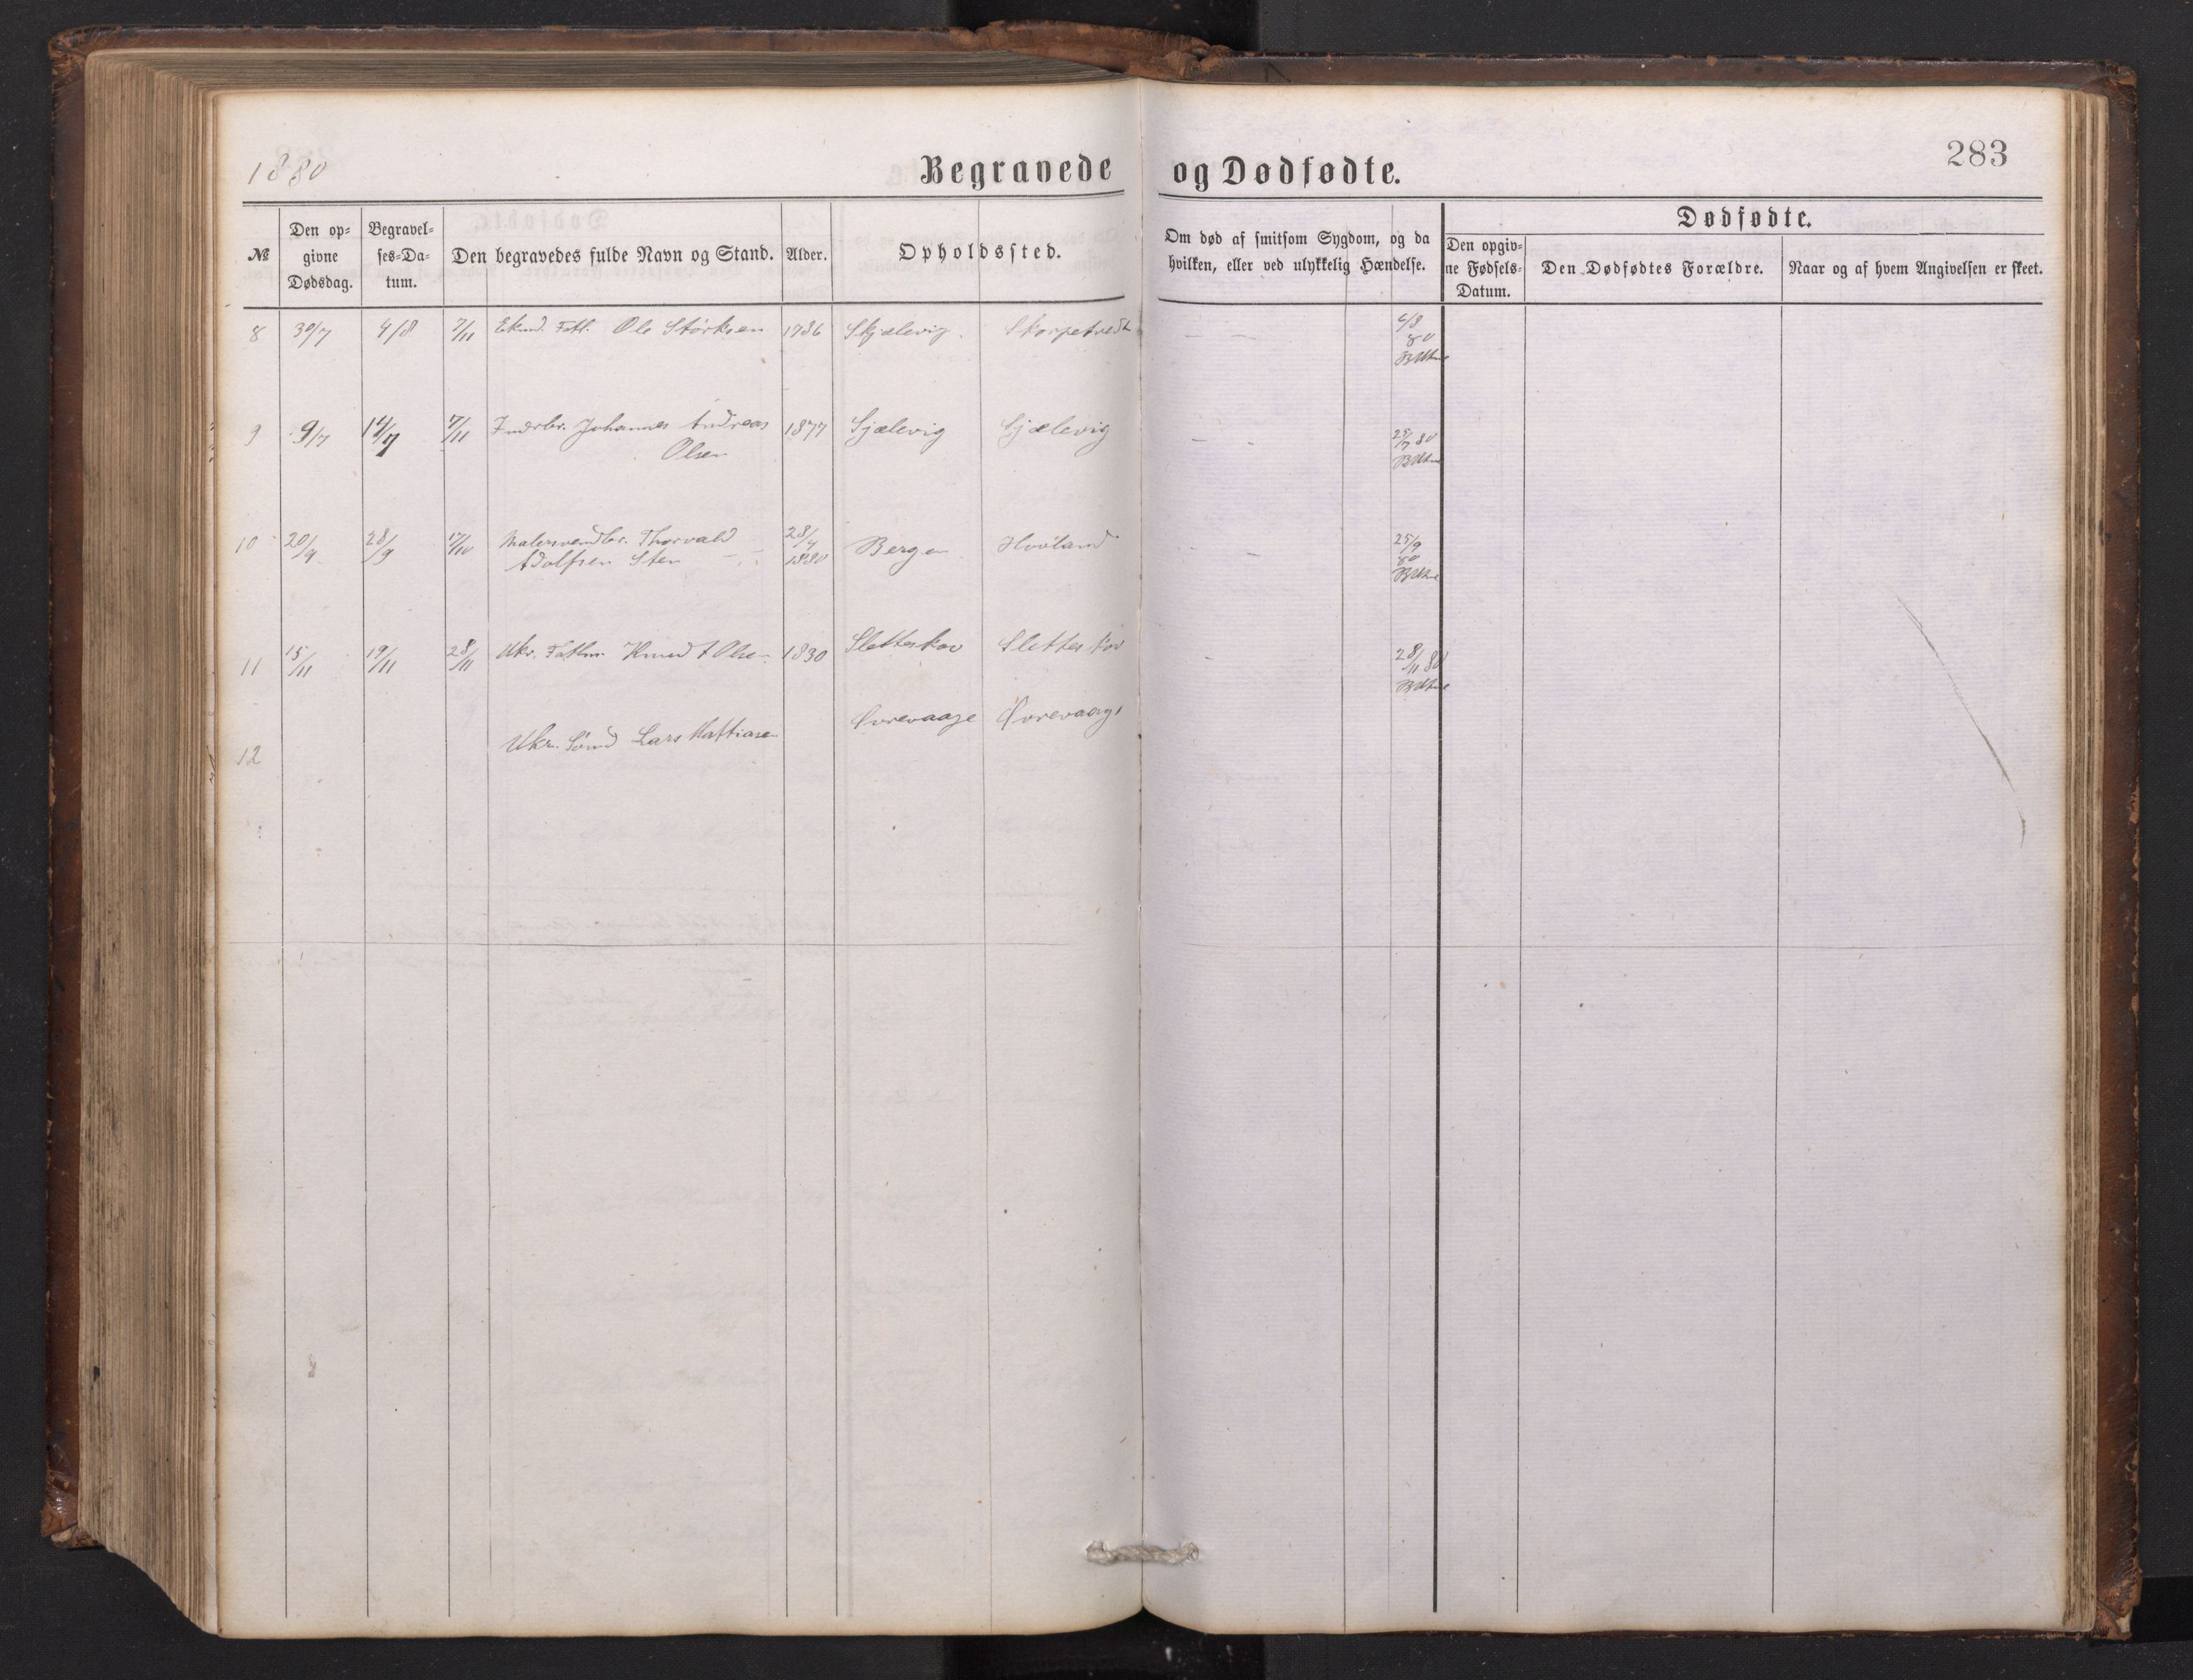 1880
Begravede og Dødfødte.
283
Dødfødte.
№
Den op-
givne
Dødsdag.
Begravel-
ses-Da-
tum.
Den begravedes fulde Navn og Stand.
Alder.
Opholdssted.
Om død af smitsom Sygdom, og da
hvilken, eller ved ulykkelig Hændelse.
Den opgiv-
ne Fødsels-
Datum.
Den Dødfødtes Forældre.
Naar og af hvem Angivelsen er skeet.
8 30/7 4/8 7/11 Ekmd. Fatl. Ole Størksen 1786 Skjælevig.
4/8
80
9 9/7 14/7 7/11 Inderbr. Johannes Andreas 1877 Sjælevig Sjælevig
Olsen
25/7 80
10 20/9 28/9 17/10 Malersvendbr. Thorvald
Adolfsen Sten
28/4
1880
Bergen Hovland
25/9
80
11 15/11 19/11 28/11 Ukr. Knud Olsen 1830 Sletteskov Sletteskov
28/11 80
12 Ukr. Lars Mattiasen Øvrevaage Øvrevaage